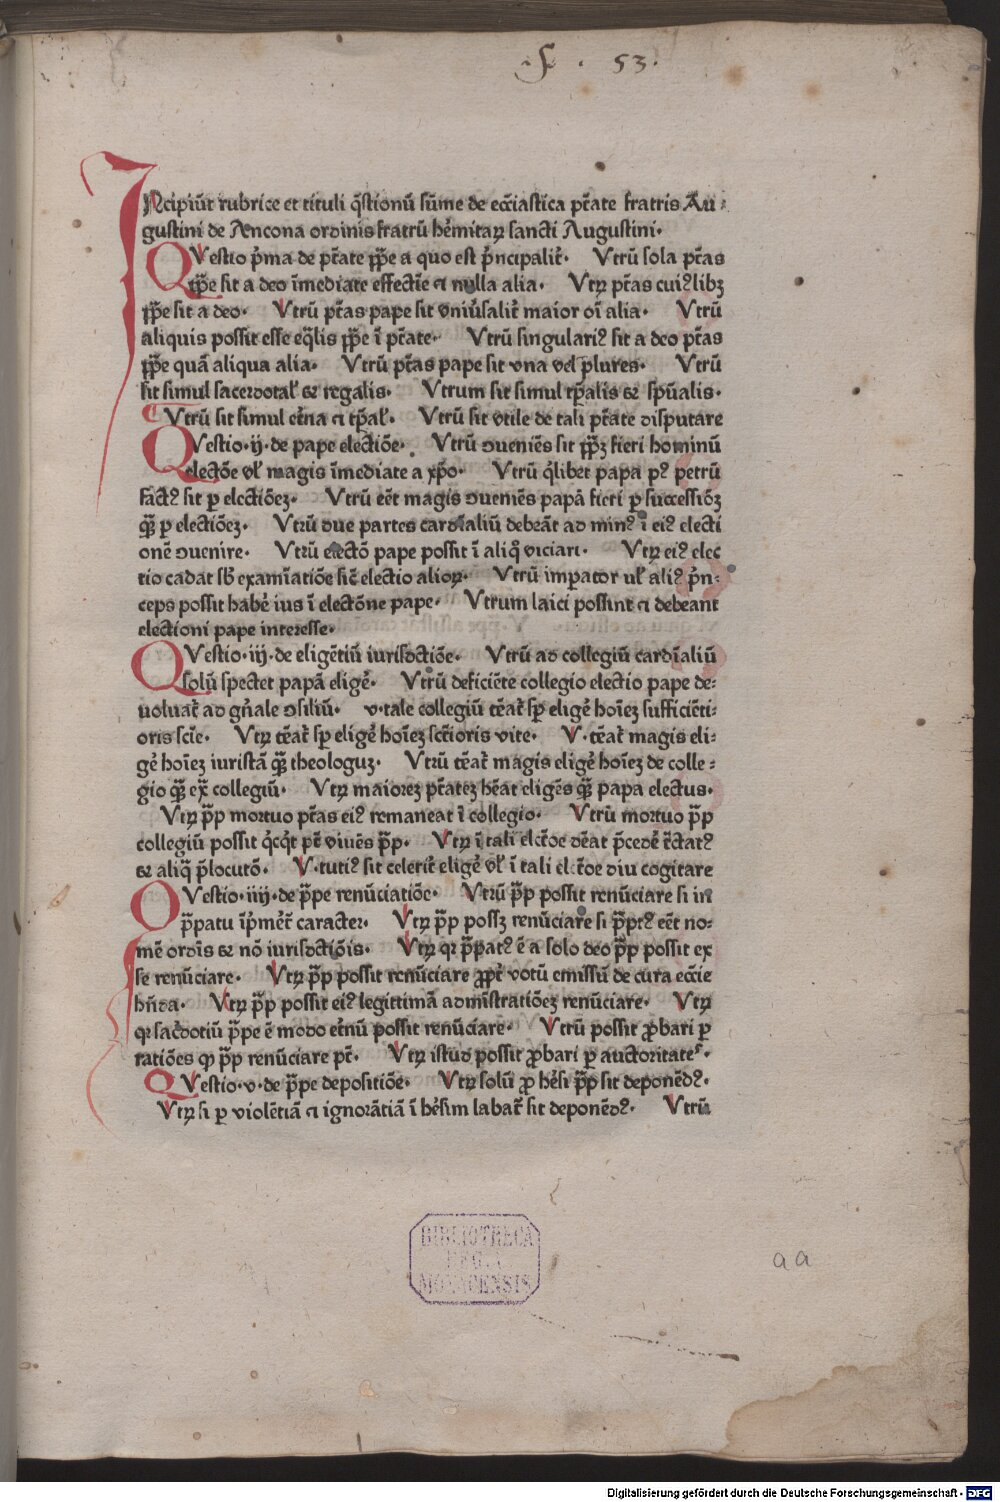 .S. 53.
INcipiūt rubrice et tituli q̄stionū sūme de ecc̄iastica ptāte fratris Au⸗
gustini de Ancona ordinis fratrū hẽmitaꝝ sancti Augustini.
QVestio p̄ma de ptāte ꝓ̄pe a quo est p̄ncipalit̄. Vtrū sola ptās
ꝓ̄pe sit a deo īmediate effectīe ⁊ nulla alia. Vtꝝ ptās cuiꝰlibꝫ
ꝓ̄pe sit a deo. Vtrū ptās pape sit vniūsalit̄ maior oī alia. Vtrū
aliquis possit esse eq̄lis ꝓ̄pe ī ptāte. Vtrū singulariꝰ sit a deo ptās
ꝓ̄pe quā aliqua alia. Vtrū ptās pape sit vna vel plures. Vtrū
sit simul sacerdotaľ & regalis. Vtrum sit simul tp̄alis & sp̄ualis.
Vtrū sit simul et̄na ⁊ tp̄aľ. Vtrū sit vtile de tali ptāte disputare
QVestio.ij.de pape electiōe. Vtrū ↄueniēs sit ꝓ̄pꝫ fieri hominū
electōe vľ magis īmediate a xp̄o. Vtrū q̄libet papa pꝰ petrū
factꝰ sit ꝑ electiōeꝫ. Vtrū eēt magis ↄueniēs papā fieri ꝑ successiōꝫ
qꝫ̄ ꝑ electiōeꝫ. Vtrū due partes cardīaliū debeāt ad minꝰ ī eiꝰ electi
onē ↄuenire. Vtrū electō pape possit ī aliq̊ viciari. Vtꝝ eiꝰ elec
tio cadat sb̄ examīatiōe sic̄ electio alioꝝ. Vtrū imperator vľ aliꝰ p̄n⸗
ceps possit habe᷑ ius ī electōne pape. Vtrum laici possint ⁊ debeant
electioni pape interesse.
QVestio.iij.de eligētiū iurisdctiōe. Vtrū ad collegiū cardīaliū
solū spectet papā elige᷑. Vtrū deficiēte collegio electio pape de⸗
uoluat̄ ad gn̄ale ↄsiliū. v.tale collegiū tēat̄ sp̄ elige᷑ hoīeꝫ sufficiēti⸗
oris scīe. Vtꝝ tēat̄ sp̄ elige᷑ hoīeꝫ sct̄ioris vite. V.tēat̄ magis eli⸗
ge᷑ hoīeꝫ iuristā qꝫ̄ theologuꝫ. Vtrū tēat̄ magis elige᷑ hoīeꝫ de colle⸗
gio qꝫ̄ ex̄ collegiū. Vtꝝ maioreꝫ ptāteꝫ hēat eligēs qꝫ̄ papa electus.
Vtꝝ p̄p mortuo ptās eiꝰ remaneat ī collegio. Vtrū mortuo p̄p
collegiū possit q̄cq̄t pt̄ viuēs p̄p. Vtꝝ ī tali elct̄oe dēat p̄cede᷑ t̄ctatꝰ
& aliq̄ p̄locutō. V.tutiꝰ sit celerit̄ elige᷑ vľ ī tali elct̄oe diu cogitare
QVestio.iiij.de p̄pe renūciatiōe. Vtrū p̄p possit renūciare si in
p̄patu īp̄met̄ caracter. Vtꝝ p̄p possꝫ renūciare si p̄ptꝰ eēt no⸗
mē ordīs & nō iurisdctiōis. Vtꝝ qꝛ p̄patꝰ ē a solo deo p̄p possit ex
se renūciare. Vtꝝ p̄p possit renūciare ꝓpt̄ votū emissū de cura ecc̄ie
hn̄da. Vtꝝ p̄p possit eiꝰ legittimā admīstratiōeꝫ renūciare. Vtꝝ
qꝛ sac̄dotiū p̄pe ē modo et̄nū possit renūciare. Vtrū possit ꝓbari ꝑ
ratiōes ꝙ p̄p renūciare pt̄. Vtꝝ istud possit ꝓbari ꝑ auctoritateˢ.
QVestio.v.de p̄pe depositiōe. Vtꝝ solū ꝓ he᷑si p̄p sit deponēdꝰ.
Vtꝝ si ꝑ violētiā ⁊ ignorātiā ī he᷑sim labat̄ sit deponēdꝰ. Vtrū
BIBLIOTHECA
REGIA
MONACENSIS
aa
Digitalisierung gefördert durch die Deutsche Forschungsgemeinschaft - DFG